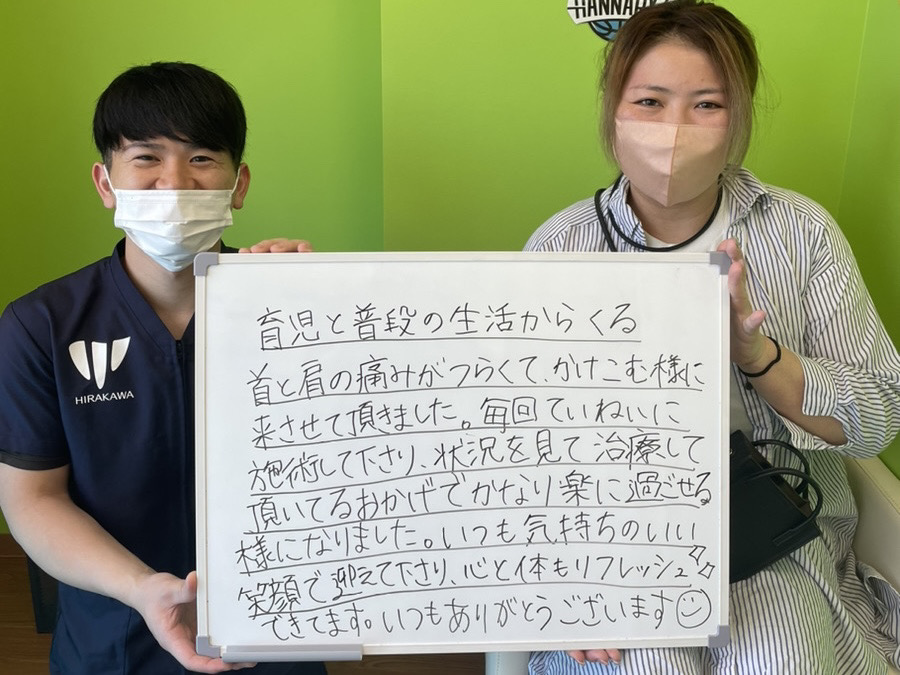 HANNA
HIRAKAWA
育児と普段の生活からくる
首と肩の痛みがつらくて、かけこむ様に
来させて頂きました。毎回ていねいに
施術して下さり、状況を見て治療して
頂いてるおかげでかなり楽に過ごせる
様になりました。いつも気持ちのいい
笑顔で迎えて下さり、心と体もリフレッシュ
できてます。いつもありがとうございます